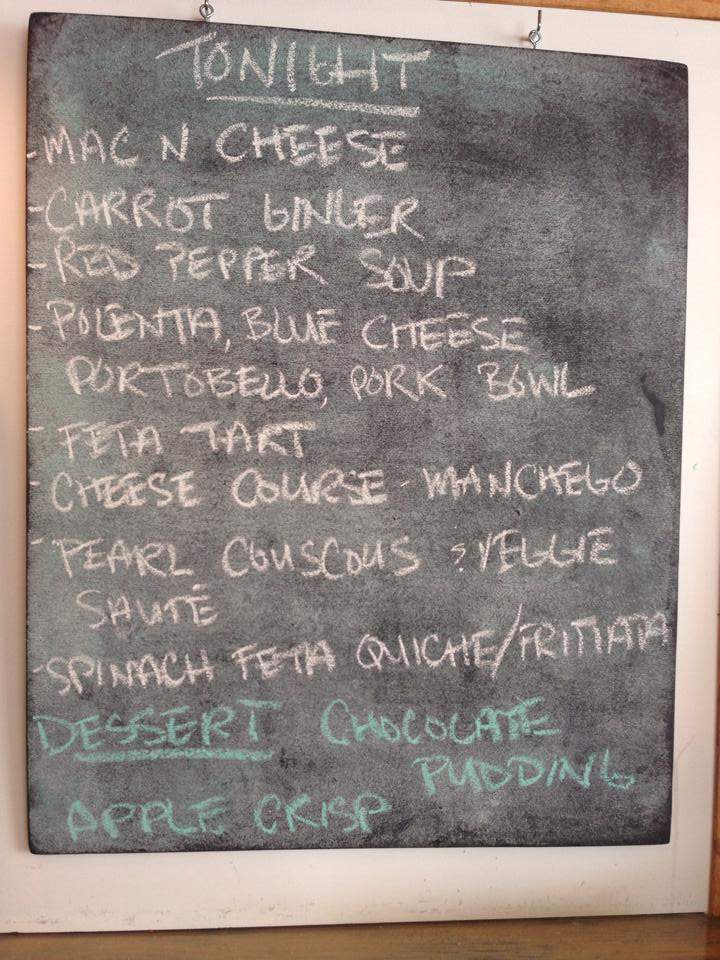 TONIGHT
- MAC N CHEESE
- CARROT GINGER
- RED PEPPER SOUP
- POLENTA, BLUE CHEESE
PORTOBELLO, PORK BOWL
- FETA TART
- CHEESE COURSE - MANCHEGO
- PEARL COUSCOUS & VEGGIE
SAUTÉ
- SPINACH FETA QUICHE/FRITTATA
DESSERT CHOCOLATE
PUDDING
APPLE CRISP